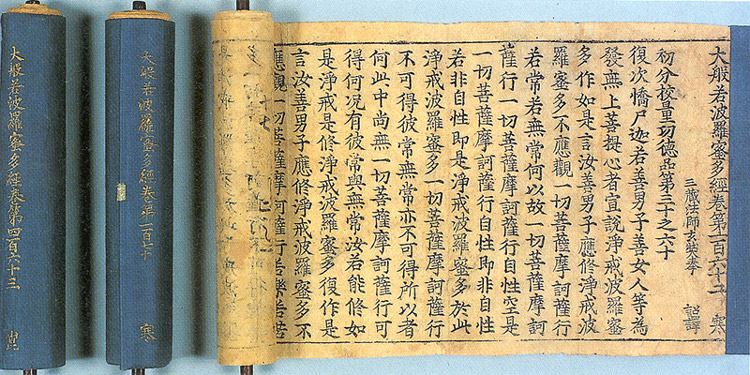 大般若波羅蜜多經卷第一百六十二 寒
三藏法師玄奘奉 詔譯
初分校量功德品第三十之六十
復次憍尸迦若善男子善女人等為
發無上菩提心者宣說淨戒波羅蜜
多作如是言汝善男子應修淨戒波
羅蜜多不應觀一切菩薩摩訶薩行
若常若無常何以故一切菩薩摩訶
薩行一切菩薩摩訶薩行自性空是
一切菩薩摩訶薩行自性即非自性
若非自性即是淨戒波羅蜜多於此
淨戒波羅蜜多一切菩薩摩訶薩行
不可得彼常無常亦不可得所以者
何此中尚無一切菩薩摩訶薩行可
得何況有彼常與無常汝若能修如
是淨戒是修淨戒波羅蜜多復作是
言汝善男子應修淨戒波羅蜜多不
應觀一切菩薩摩訶薩行若樂若苦
大般若波羅蜜多經卷第一百七十 寒
大般若波羅蜜多經卷第四百六十三 崑